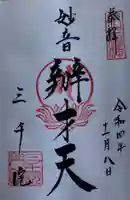 奉拝
令和四年
十一月八日
妙音
辯才天
三千院